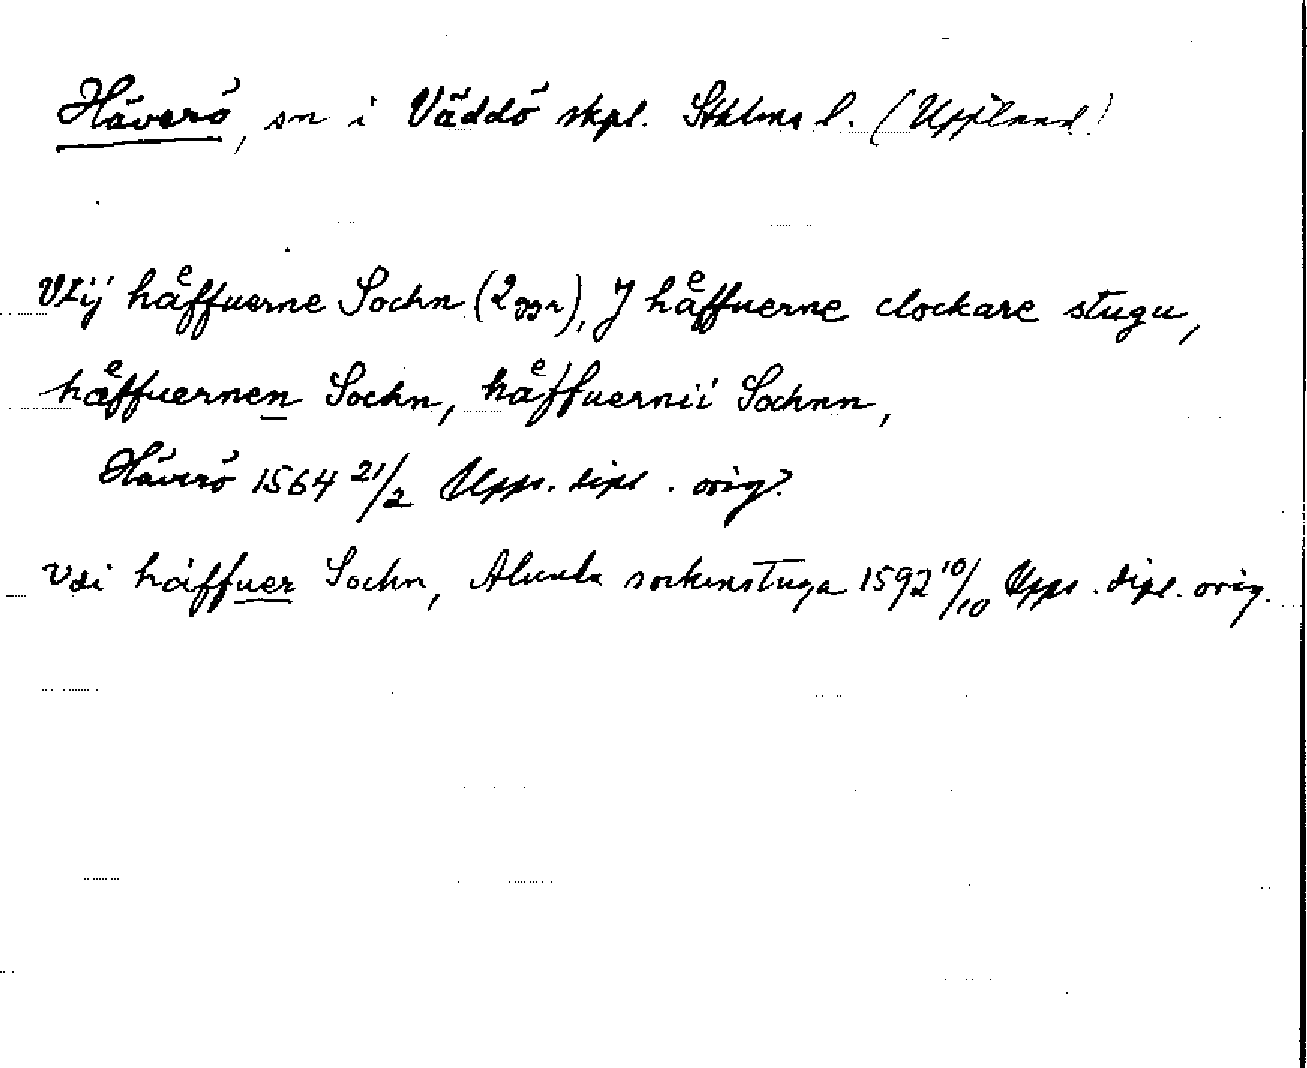 Häverö, sn i Väddö skpl. Sthlms l. (Uppland)
Vtij håͤffuerne Sochn (2 ggr), J håͤffuerne clockare stugu,
håͤffuernen Sochn, håͤffuernii Sochnn,
Häverö 1564 21/2 Upps. dipl. orig?
Vdi häffuer Sochn, Alunda sockenstuga 1592 10/10 Upps. dipl. orig.